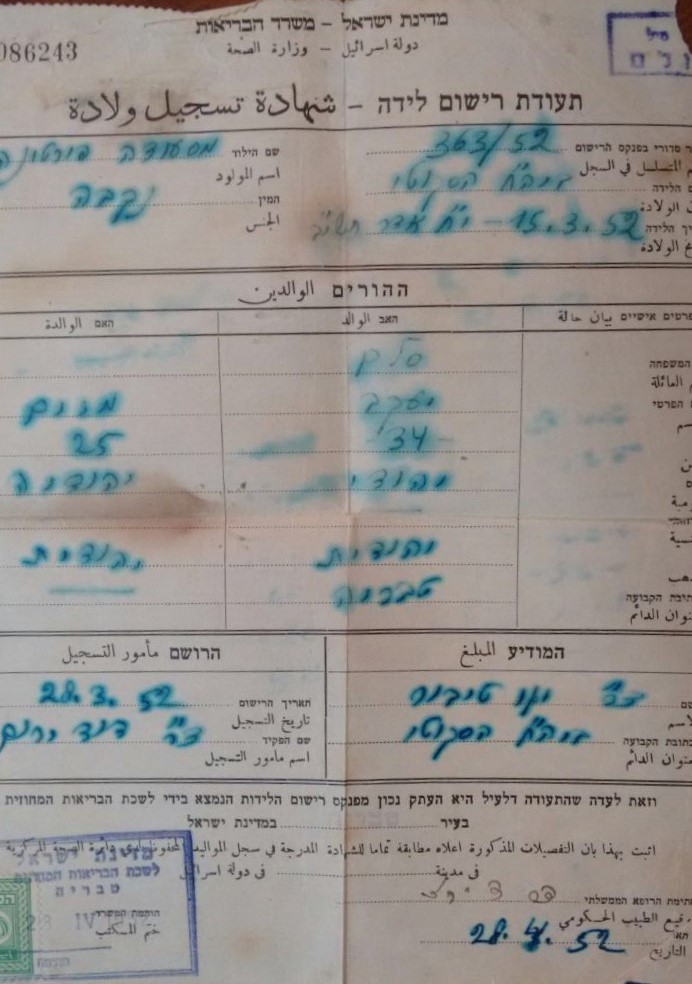 מדינת ישראל - משרד הבריאות
دولة اسرائيل - وزارة الصحة
086243
תעודת רישום לידה - شهادة تسجيل ولادة
סדורי בפנקס הרישום 363/52
المتسلسل في السجل
הלידה ביה"ח הסקוטי
الولادة
הלידה 15.3.52 - י"ח אדר תשי"ב
الولادة
שם הילוד מסעודה פורטונה
اسم المولود
המין נקבה
الجنس
ההורים الوالدين
פרטים אישיים بيان حالة
האב الوالد
האם الوالدة
המשפחה
العائلة
הפרטי יעקב מרים
34 25
יהודית יהודיה
יהודית יהודית
כתובת הקבועה טבריה
عنوان الدائم
המודיע المبلغ
הרושם مأمور التسجيل
ד"ר טיבור
כתובת הקבועה ביה"ח הסקוטי
عنوان الدائم
תאריך הרישום 28.3.52
تاريخ التسجيل
שם הפקיד ד"ר דוד
اسم مأمور التسجيل
וזאת לעדה שהתעודה דלעיל היא העתק נכון מפנקס רישום הלידות הנמצא בידי לשכת הבריאות המחוזית
בעיר במדינת ישראל
اثبت بهذا بان التفصيلات المذكورة اعلاه مطابقة تماما للشهادة المدرجة في سجل المواليد المحفوظ لدى دائرة الصحة المركزية
في مدينة في دولة اسرائيل
חתימת הרופא הממשלתי
الطبيب الحكومي
التاريخ 28.4.52
מדינת ישראל
לשכת הבריאות המחוזית
טבריה
28 IV
חותמת המשרד
ختم المكتب